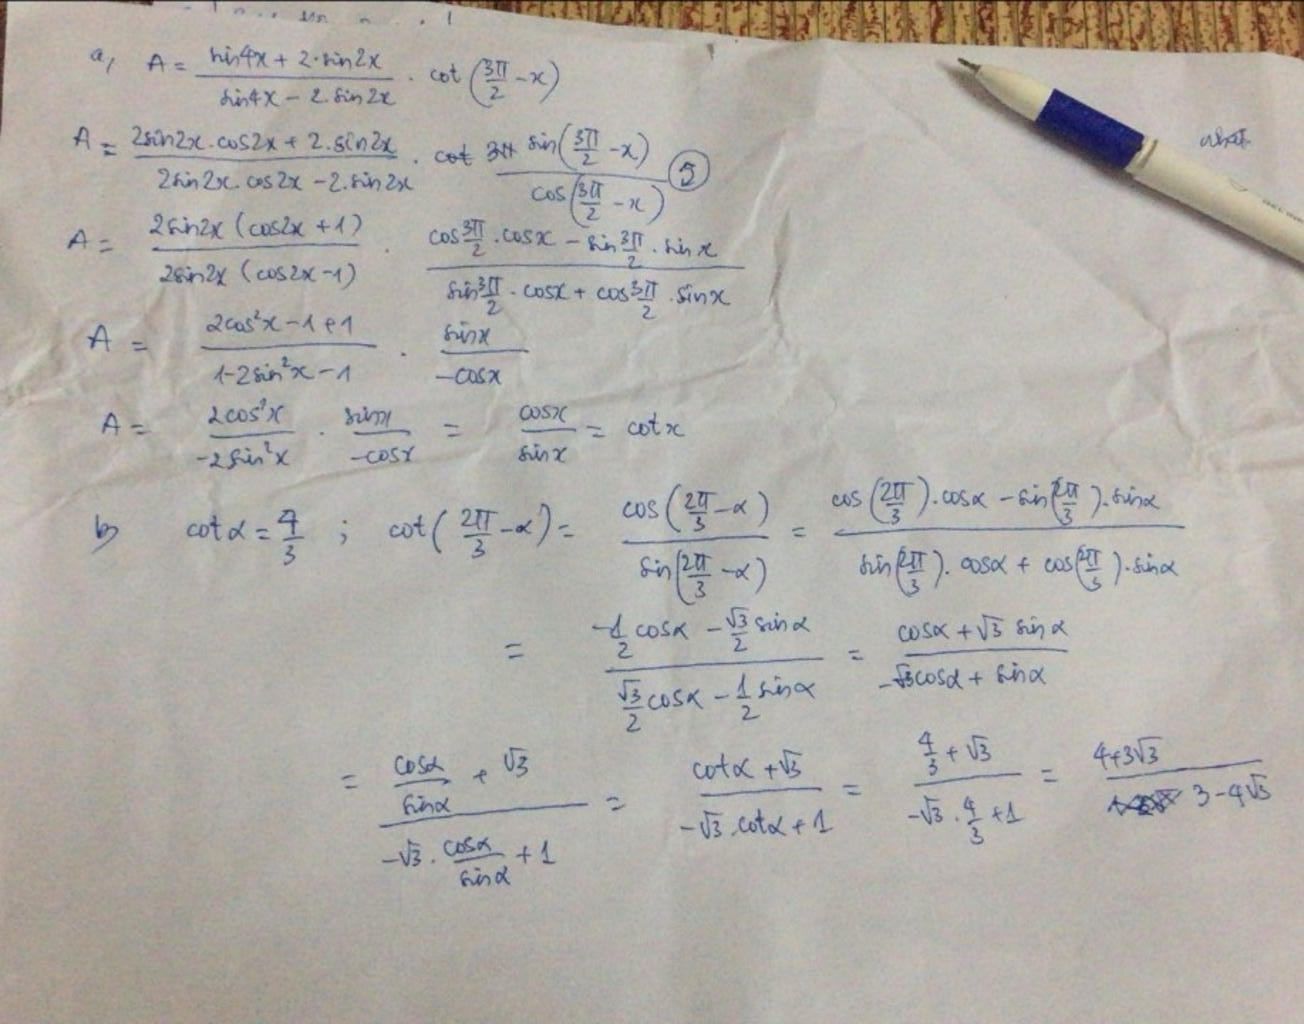 a, A = (sin4x + 2·sin2x)/(sin4x − 2·sin2x) · cot(3π/2 − x)
A = (2sin2x·cos2x + 2·sin2x)/(2sin2x·cos2x − 2·sin2x) · cot sin(3π/2 − x)/cos(3π/2 − x) ⑤
A = 2sin2x (cos2x + 1)/2sin2x (cos2x − 1) · (cos 3π/2 · cosx − sin 3π/2 · sinx)/(sin 3π/2 · cosx + cos 3π/2 · sinx)
A = (2cos²x − 1 + 1)/(1 − 2sin²x − 1) · sinx/−cosx
A = 2cos²x/−2sin²x · sinx/−cosx = cosx/sinx = cotx
b, cotα = 4/3 ; cot(2π/3 − α) = cos(2π/3 − α)/sin(2π/3 − α) = (cos(2π/3)·cosα − sin(2π/3)·sinα)/(sin(2π/3)·cosα + cos(2π/3)·sinα)
= (−1/2 cosα − √3/2 sinα)/(√3/2 cosα − 1/2 sinα) = (cosα + √3 sinα)/(−√3cosα + sinα)
= (cosα/sinα + √3)/(−√3 · cosα/sinα + 1) = (cotα + √3)/(−√3·cotα + 1) = (4/3 + √3)/(−√3 · 4/3 + 1) = (4+3√3)/(3−4√3)